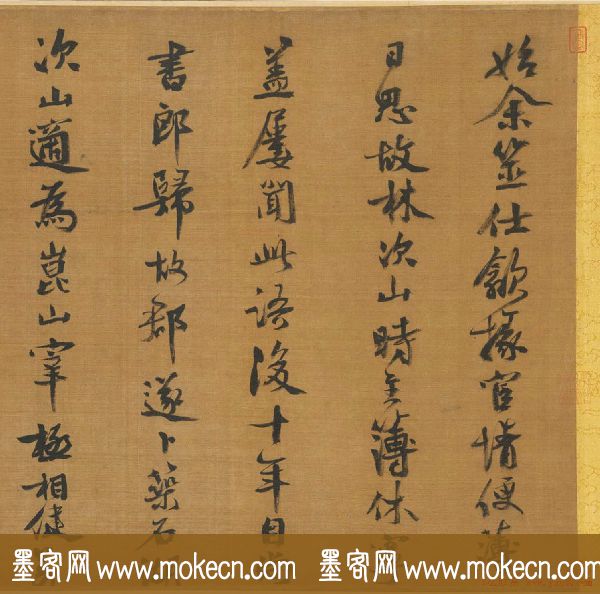 始余筮仕歙掾宦情便薄
日思故林次山時主簿休寧
蓋屢聞此語後十年自尚
書郎歸故郡遂卜築石湖
次山適為崑山宰極相健
墨客网 www.mokecn.com 墨客网 www.mokecn.com